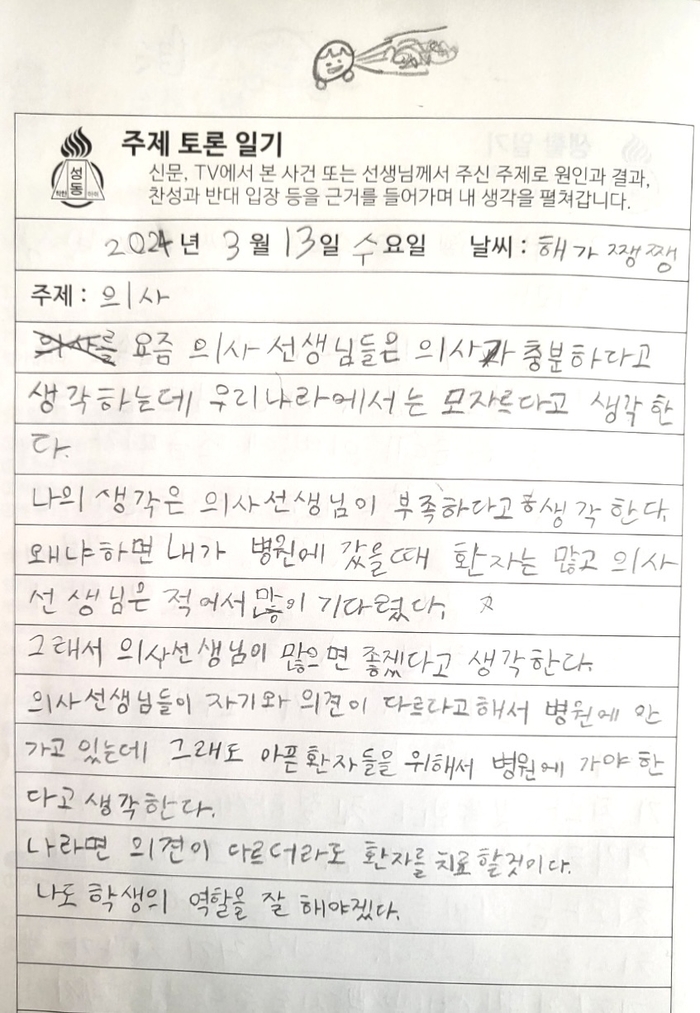 주제 토론 일기
신문, TV에서 본 사건 또는 선생님께서 주신 주제로 원인과 결과,
찬성과 반대 입장 등을 근거를 들어가며 내 생각을 펼쳐갑니다.
성동
착한 아이
2024년 3월 13일 수요일 날씨 : 해가 쨍쨍
주제 : 의사
의사를 요즘 의사 선생님들은 의사가 충분하다고
생각하는데 우리나라에서는 모자르다고 생각한
다.
나의 생각은 의사선생님이 부족하다고 생각한다.
왜냐하면 내가 병원에 갔을때 환자는 많고 의사
선생님은 적어서 많이 기다렸다.
그래서 의사선생님이 많으면 좋겠다고 생각한다.
의사선생님들이 자기와 의견이 다르다고해서 병원에 안
가고 있는데 그래도 아픈환자들을 위해서 병원에 가야한
다고 생각한다.
나라면 의견이 다르더라도 환자를 치료할것이다.
나도 학생의 역할을 잘 해야겠다.